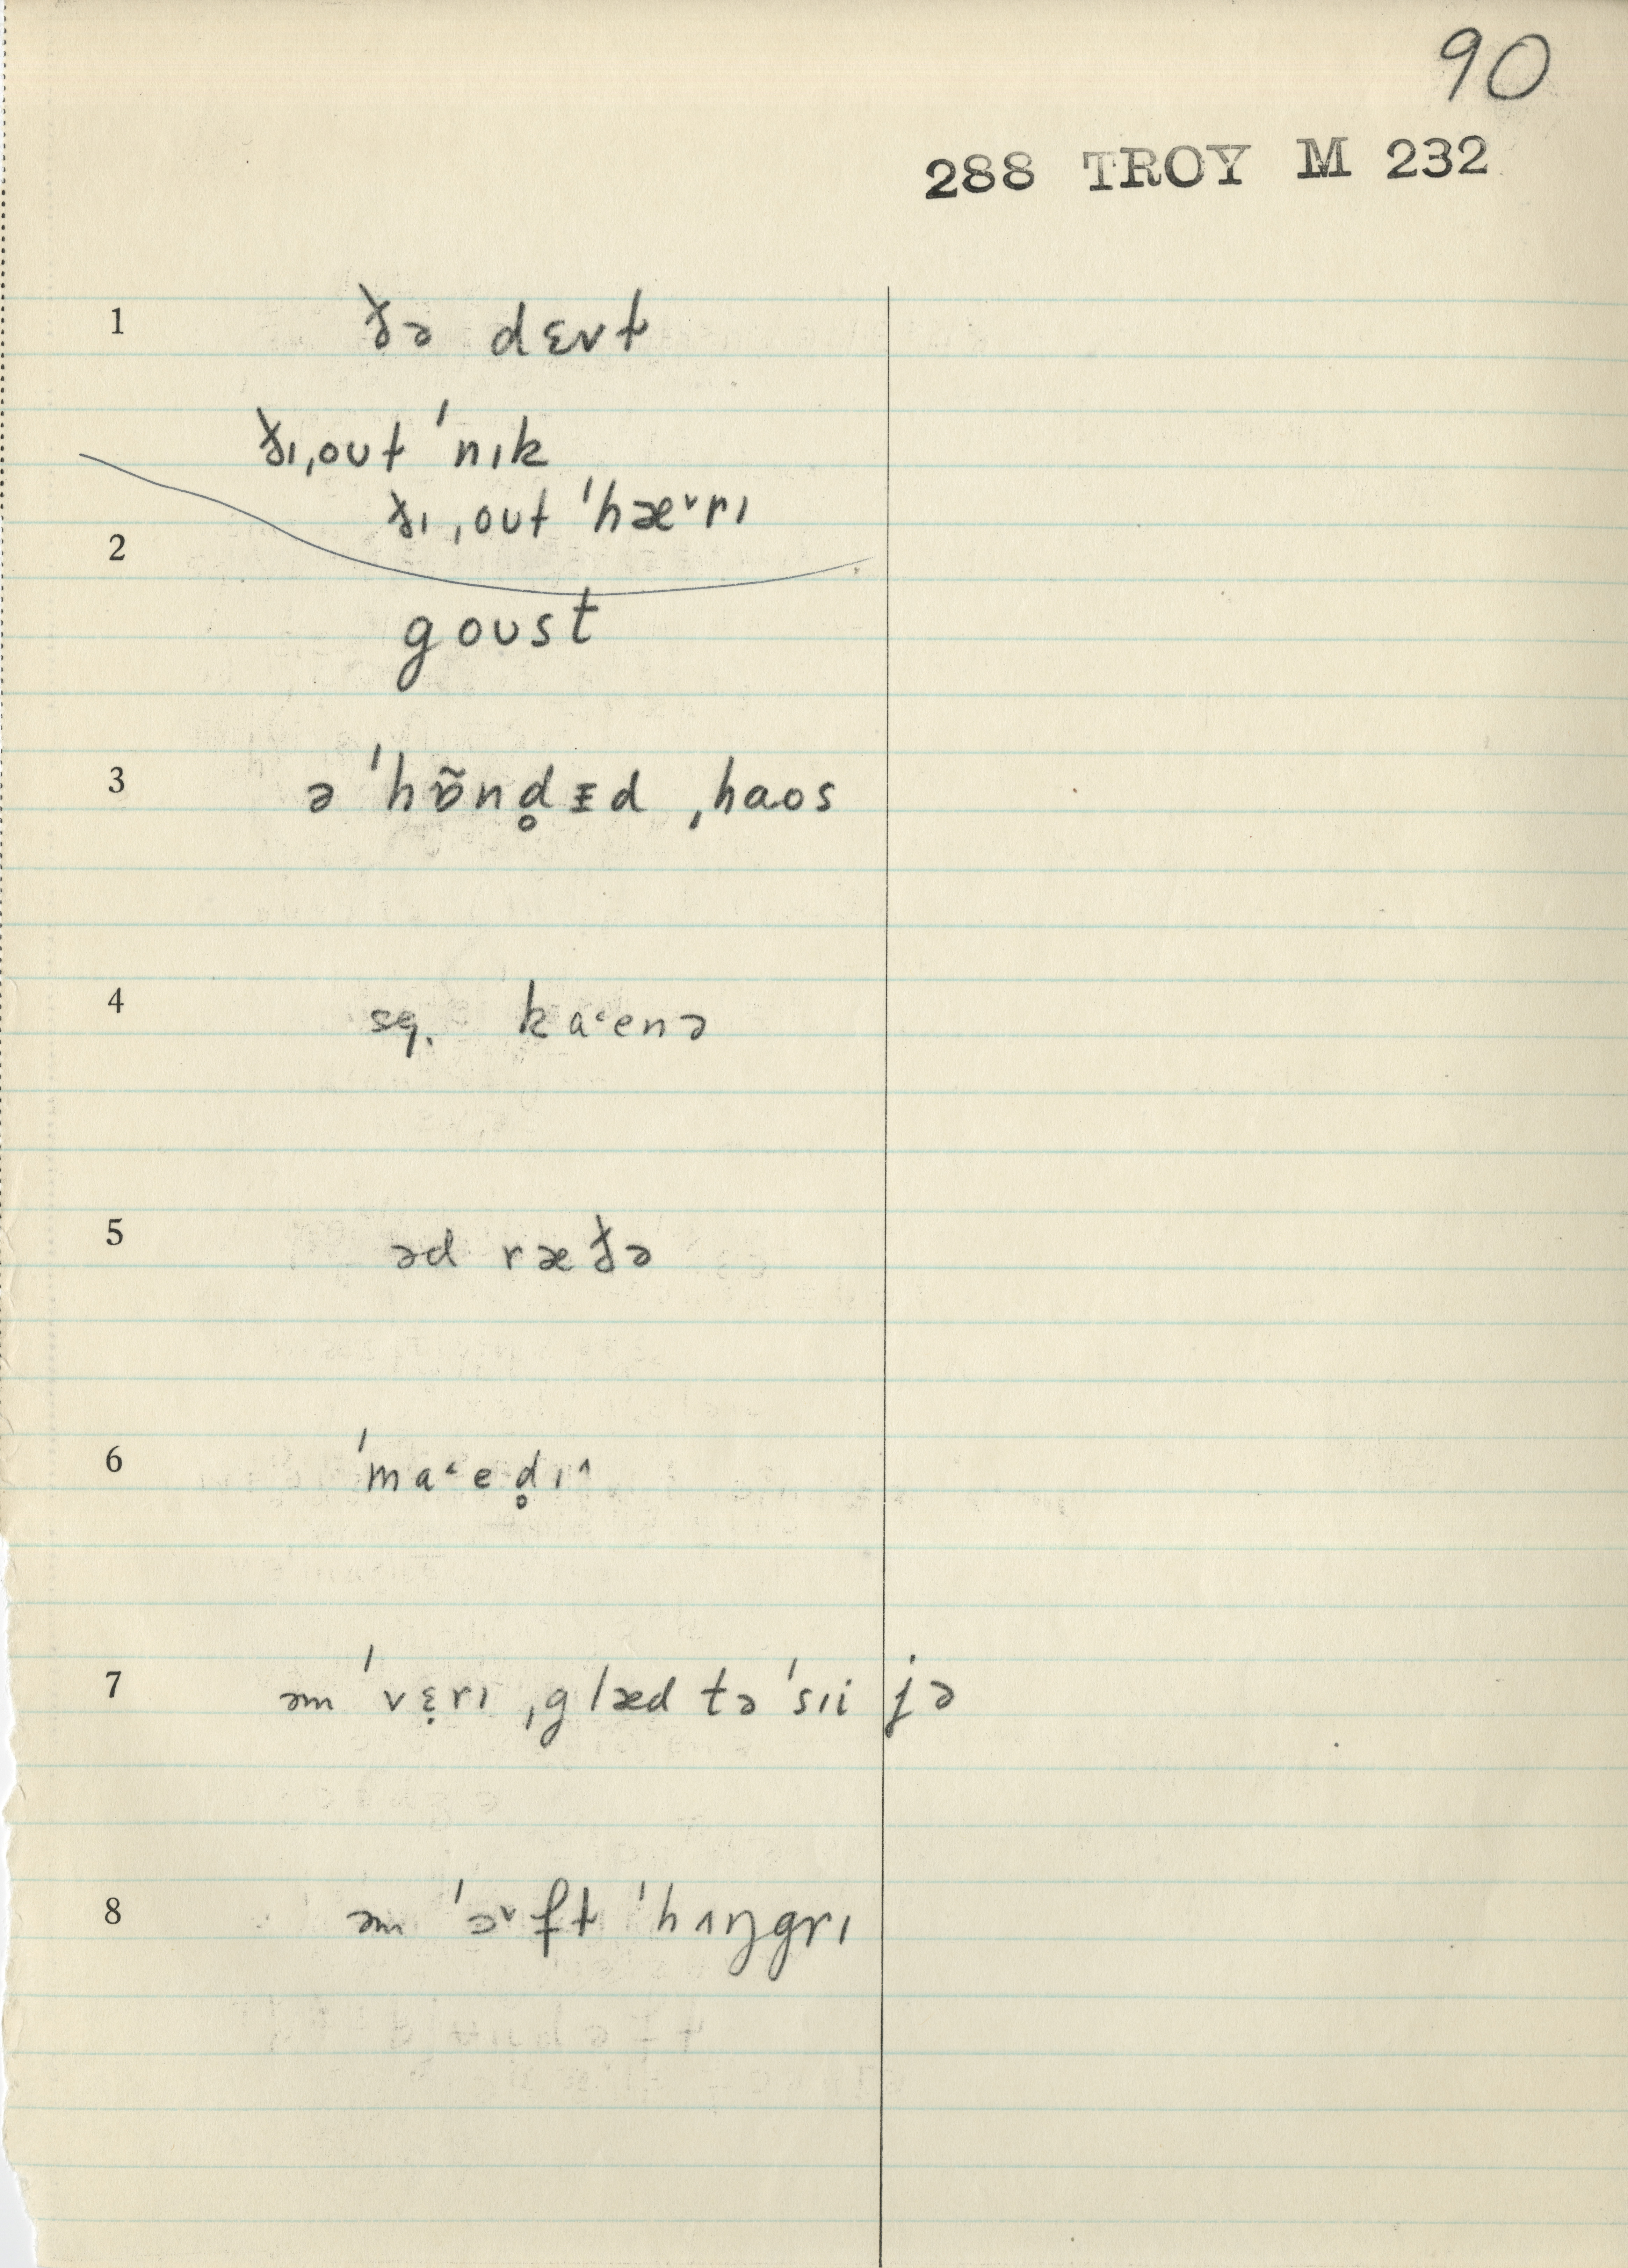 90
288 TROY M 232
1 ðə dɛvɫ
ðɪ ˌouɫ ˈnɪk
2 ðɪ ˌouɫ ˈhæ˅rɪ
goust
3 ə ˈhɒ̃nd̥ᵻd ˌhaos
4 sq. ka˂enə
5 əd ræðə
6 ˈma˂ed̥ɪ˄
7 əm ˈvɛ̣rɪ ˌglæd tə ˈsɪi jə
8 əm ˈɔ˅fɫ ˈhʌŋgrɪ